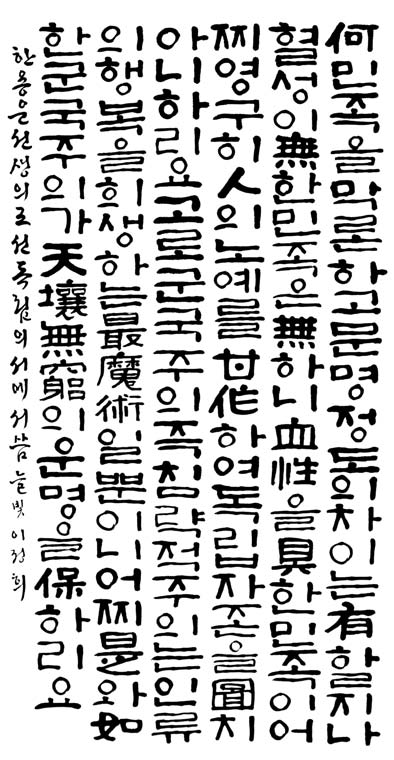 何민족을막론하고문명정도의차이는有할지나
혈성이無한민족은無하니血性을具한민족이어
찌영구히人의노예를甘作하여독립자존을圖치
아니하리요고로군국주의즉침략적주의는인류
의행복을희생하는最魔術일뿐이니어찌是와如
한군국주의가天壤無窮의운명을保하리요
한용운선생의조선독립의서에서씀 늘빛 이정희